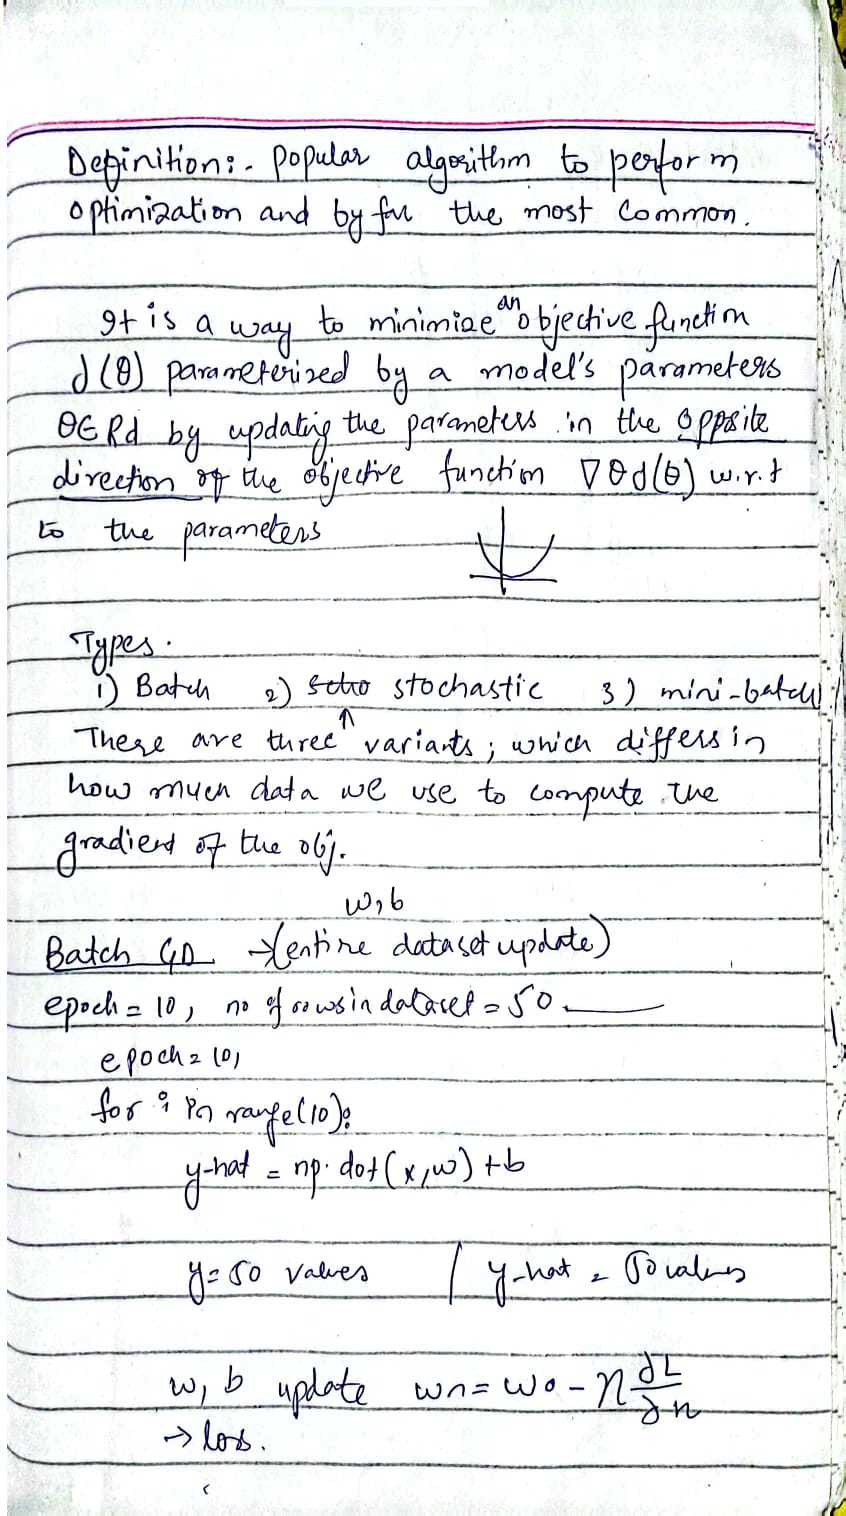 Definition:- popular algorithm to perform
optimization and by far the most common.
It is a way to minimize an objective function
J(θ) parameterized by a model's parameters
θ∈Rd by updating the parameters in the opposite
direction of the objective function ∇θJ(θ) w.r.t
to the parameters
Types.
1) Batch 2) stochastic 3) mini-batch
These are three variants; which differs in
how much data we use to compute the
gradient of the obj.
w,b
Batch GD → (entire dataset update)
epoch = 10, no of rows in dataset = 50
epoch = 10,
for i in range(10):
y-hat = np.dot(x,w) + b
y = 50 values / y-hat = 50 values
w, b update wn = wo - η ∂L/∂n
→ loss.